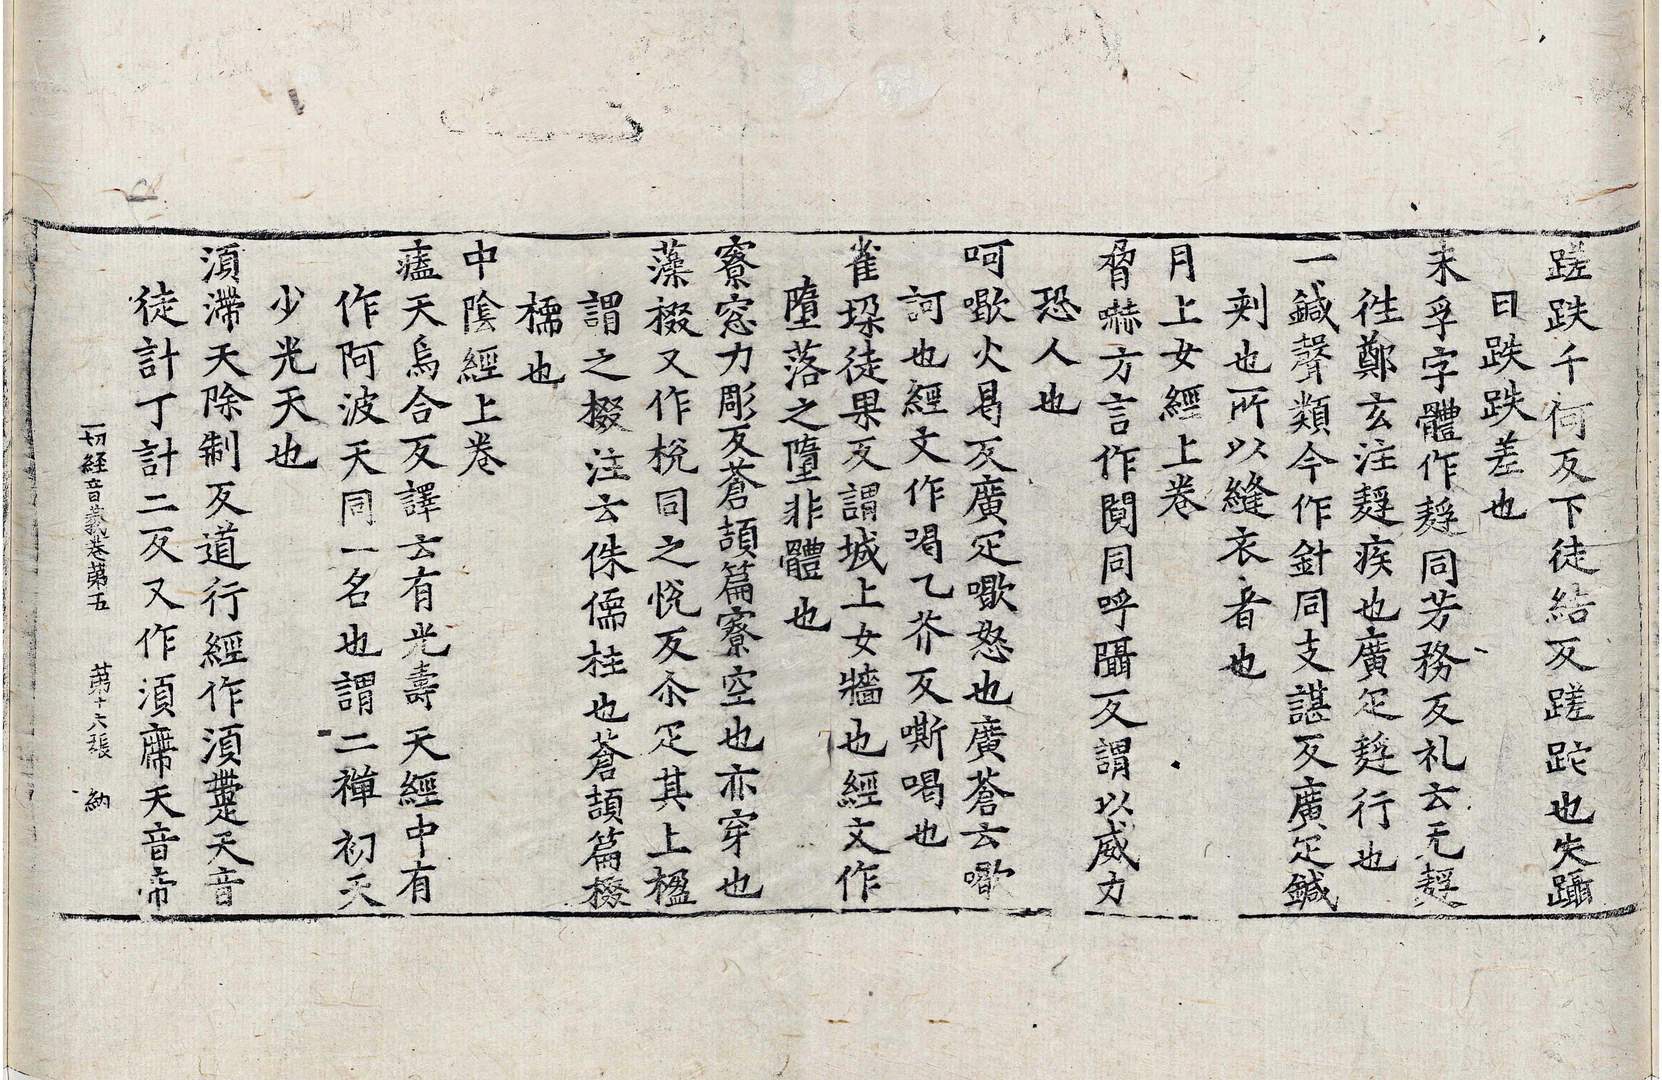 蹉跌千何反下徒結反蹉跎也失躡
曰跌跌差也
末孚字體作麫同芳務反礼云无麫
徃鄭玄注麫疾也廣疋麫行也
一鍼聲類今作針同支諶反廣疋鍼
刾也所以縫衣者也
月上女經上卷
脅嚇方言作䦧同呼隔反謂以威力
恐人也
呵㘊火曷反廣疋㘊怒也廣蒼云㘊
訶也經文作喝乙芥反嘶喝也
雀垛徒果反謂城上女牆也經文作
墮落之墮非體也
寮窓力彫反蒼頡篇寮空也亦穿也
藻棳又作梲同之悅反尒疋其上楹
謂之棳注云侏儒柱也蒼頡篇棳
檽也
中陰經上卷
㿺天烏合反譯云有光壽天經中有
作阿波天同一名也謂二禪初天
少光天也
湏滯天除制反道行經作湏疐天音
徒計丁計二反又作湏廗天音帝
一切經音義卷苐五　苐十六張　納